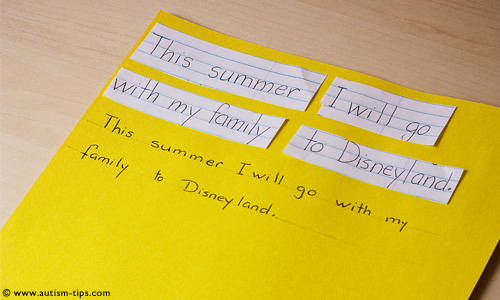 This summer I will go
with my family to Disneyland.
This summer I will go with my
family to Disneyland.
© www.autism-tips.com